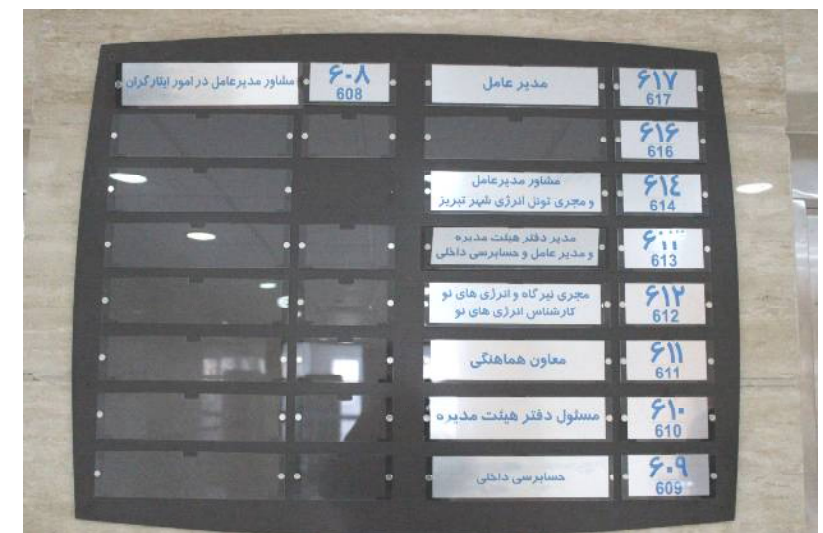 ۶۱۷
617
مدیر عامل
۶۰۸
608
مشاور مدیرعامل در امور ایثارگران
۶۱۶
616
۶۱٤
614
مشاور مدیرعامل
و مجری تونل انرژی شهر تبریز
613
مدیر دفتر هیئت مدیره
و مدیر عامل و حسابرسی داخلی
۶۱۲
612
مجری نیرگاه و انرژی های نو
کارشناس انرژی های نو
۶۱۱
611
معاون هماهنگی
۶۱۰
610
مسئول دفتر هیئت مدیره
۶۰۹
609
حسابرسی داخلی